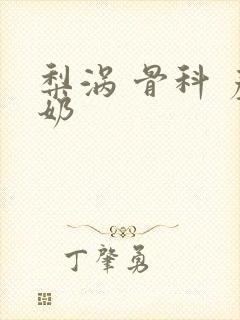 梨涡 骨科
奶
丁肇勇